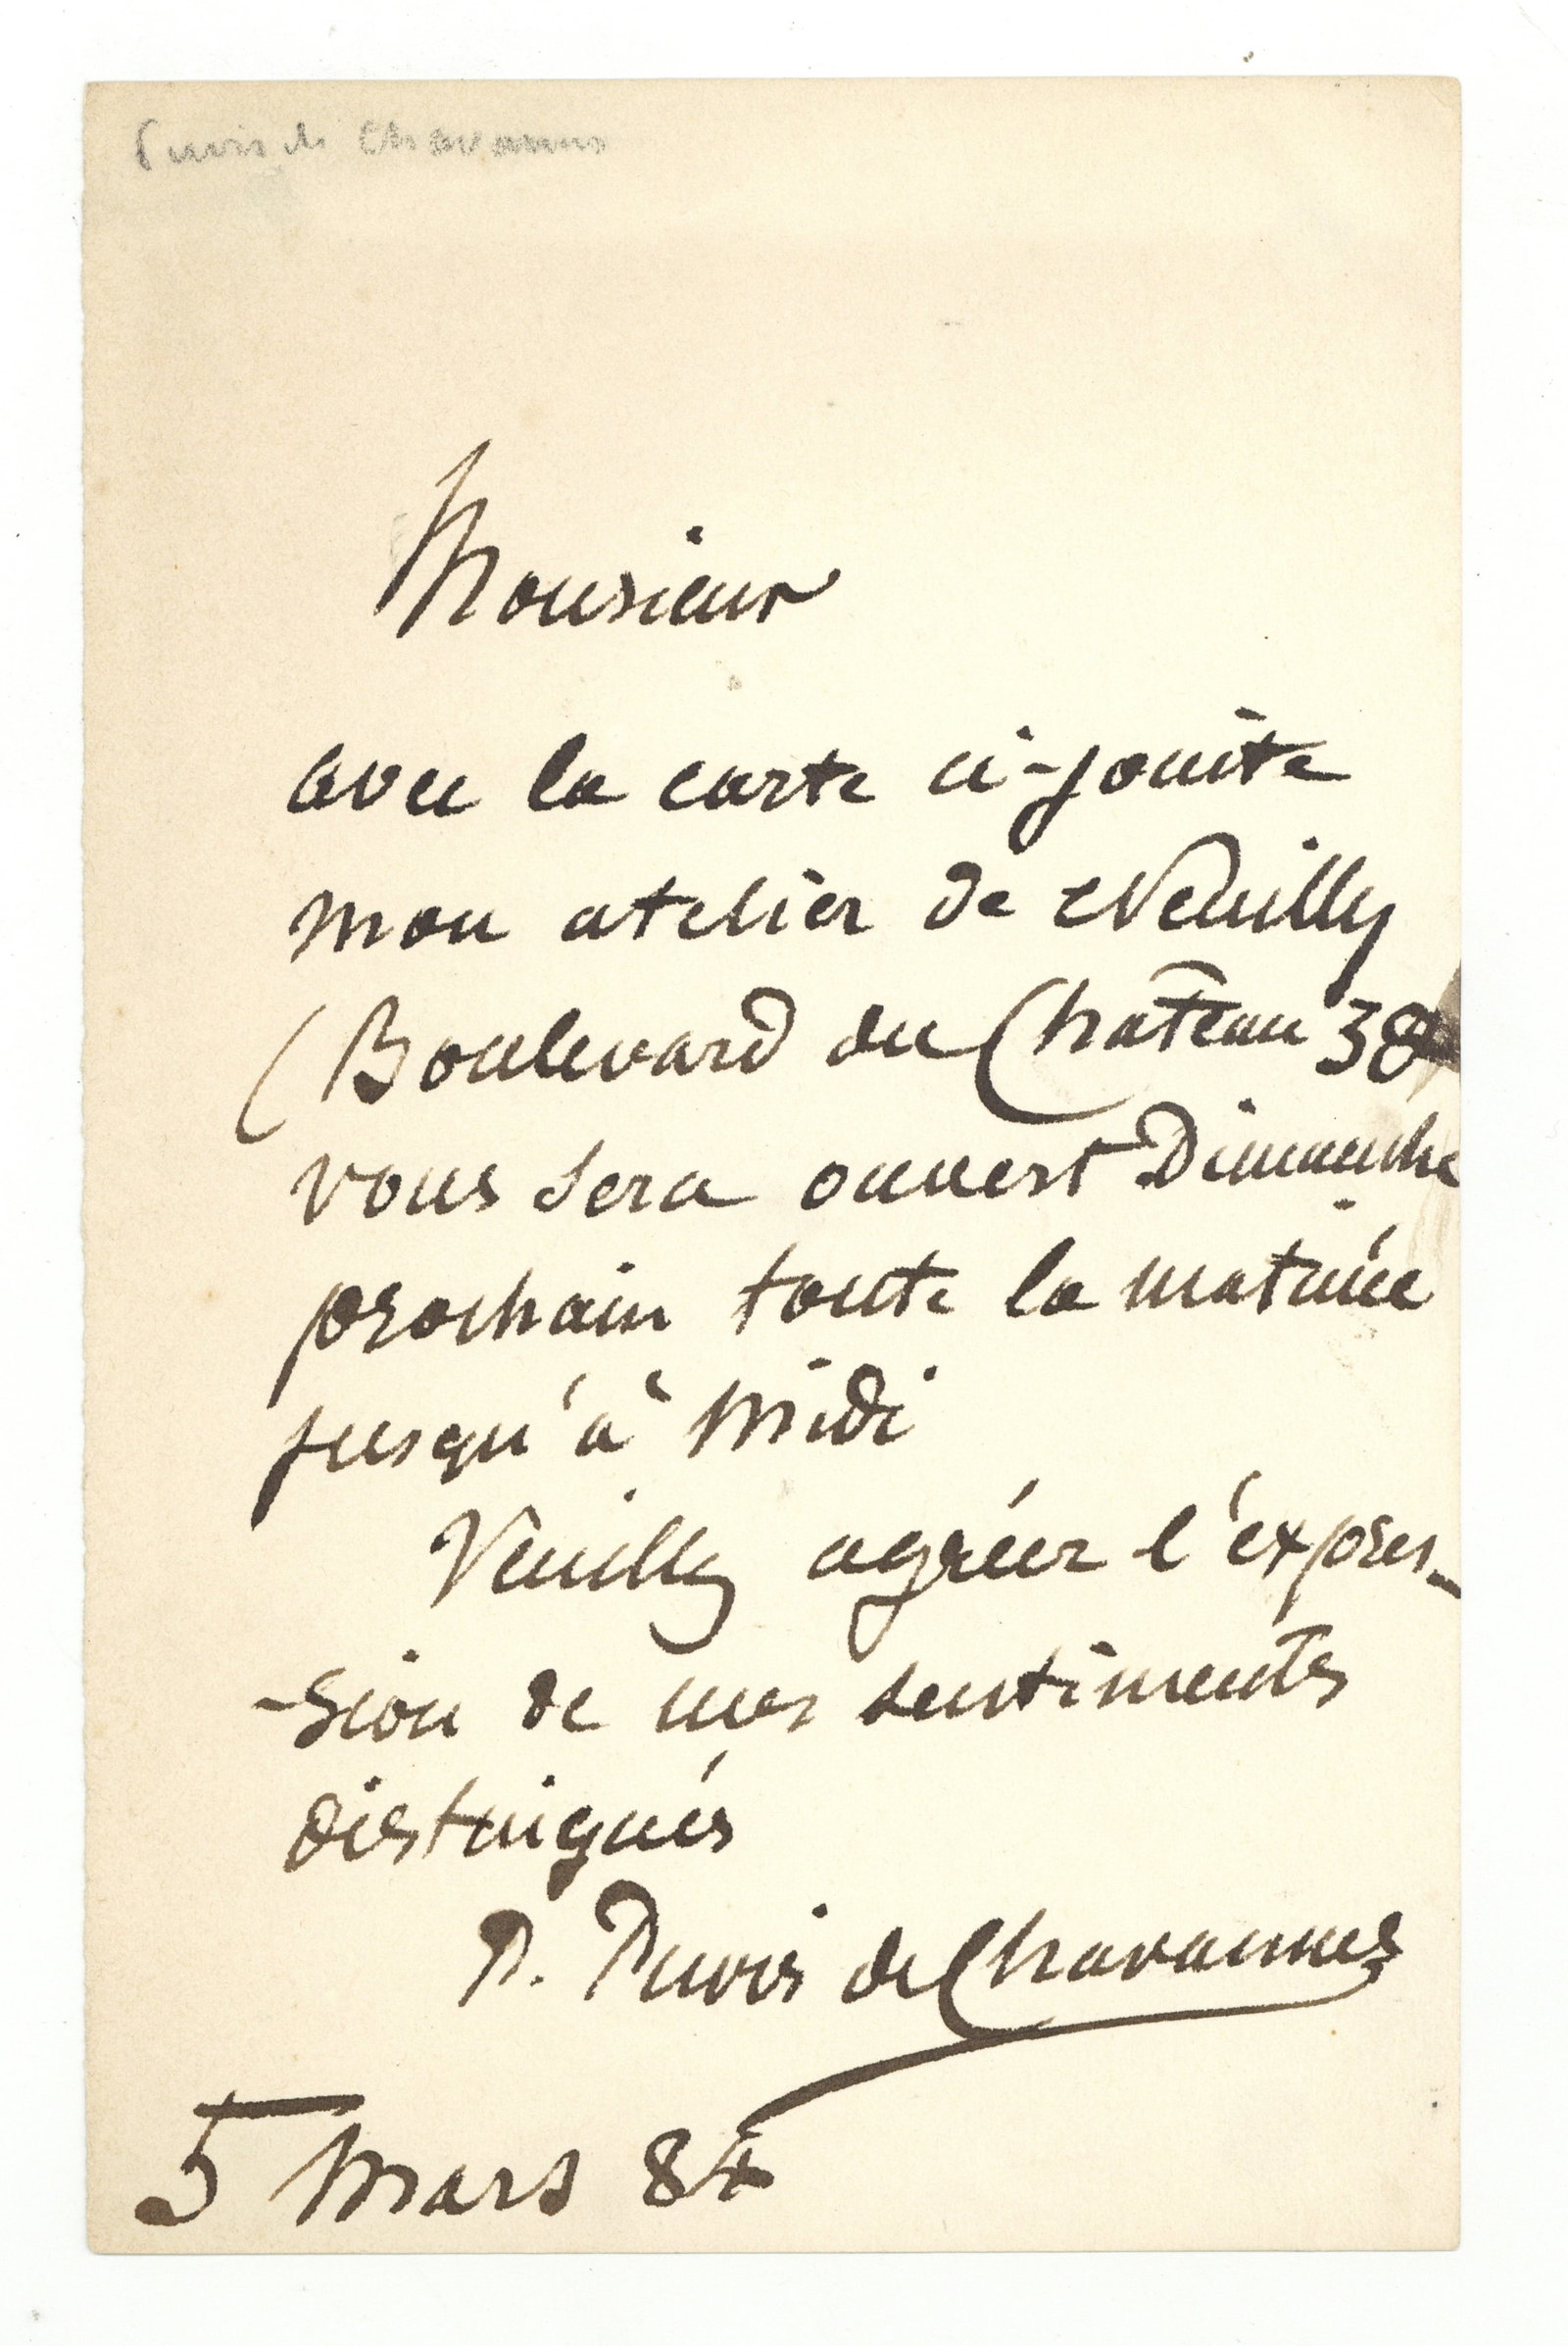 Puvis de Chavannes
Monsieur
avec la carte ci-jointe
mon atelier de Neuilly
(Boulevard du Château 38
vous sera ouvert Dimanche
prochain toute la matinée
jusqu'à midi
Veuillez agréer l'expres-
-sion de mes sentiments
distingués
P. Puvis de Chavannes
5 Mars 84